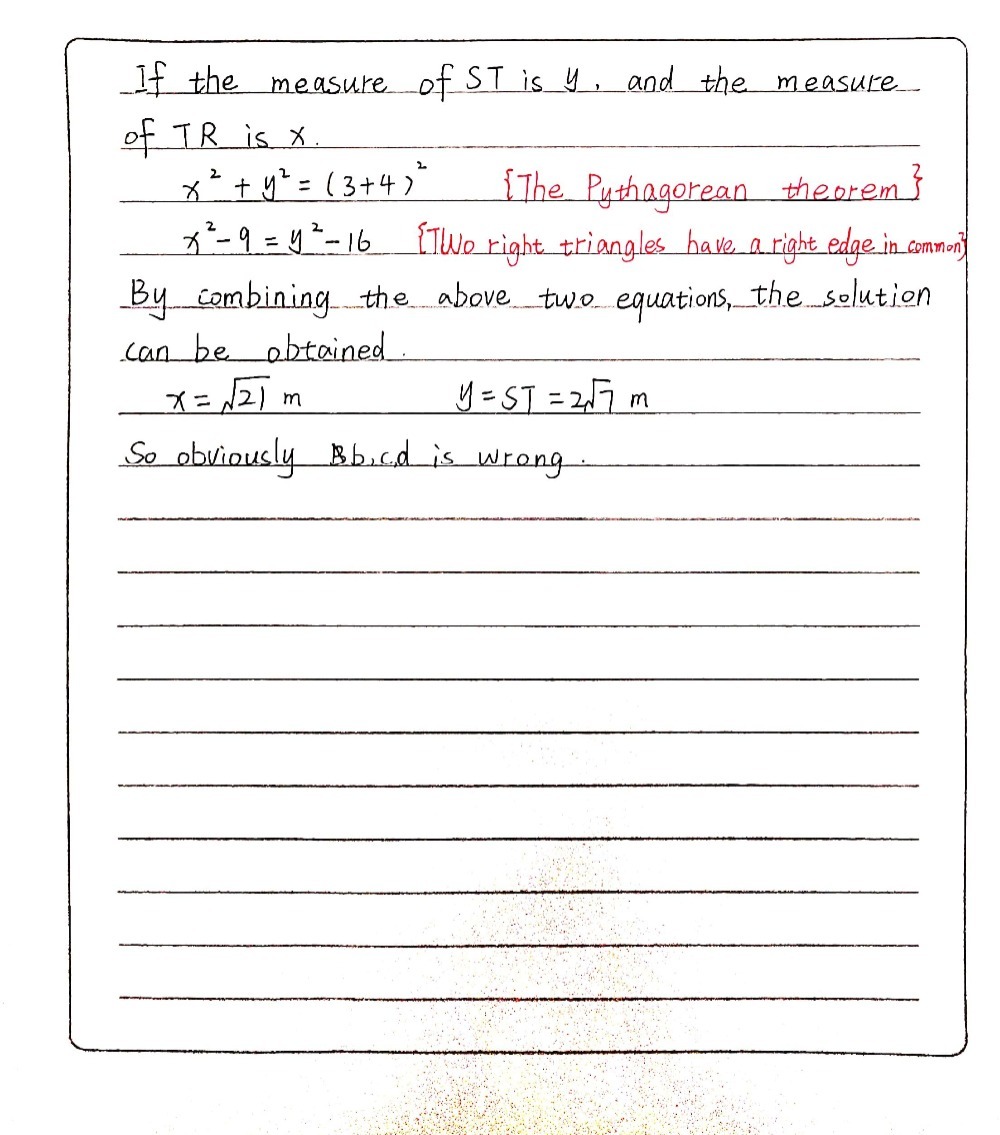 If the measure of ST is y, and the measure
of TR is x.
x² + y² = (3+4)² {The Pythagorean theorem}
x² - 9 = y² - 16 {TWo right triangles have a right edge in common}
By combining the above two equations, the solution
can be obtained.
x = √21 m y = ST = 2√7 m
So obviously b,c,d is wrong.